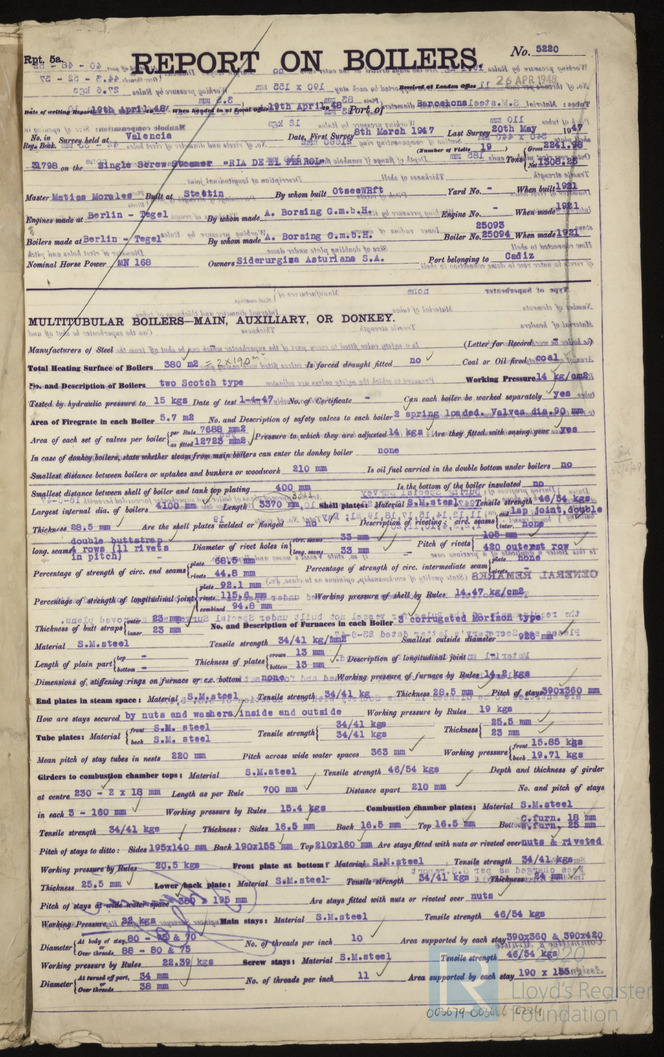 Rpt. 5a.
REPORT ON BOILERS.
No. 5220
Received at London Office 26 APR 1948
Date of writing Report 19th April 48. When handed in at Local Office 19th April 48 Port of Barcelona
No. in Reg. Book. Survey held at Valencia Date, First Survey 8th March 1947 Last Survey 20th May 1947
(Number of Visits 19)
31798 on the Single Screw Steamer "RIA DE EL FERROL" Tons Gross 2241.98 Net 1308.25
Master Matias Morales Built at Stettin By whom built OtseeWRft Yard No. - When built 1921
Engines made at Berlin - Tegel By whom made A. Borsing G.m.b.H. Engine No. - When made 1921
Boilers made at Berlin - Tegel By whom made A. Borsing G.m.b.H. Boiler No. 25093 25094 When made 1921
Nominal Horse Power MN 168 Owners Siderurgiza Asturiana S.A. Port belonging to Cadiz
MULTITUBULAR BOILERS—MAIN, AUXILIARY, OR DONKEY.
Manufacturers of Steel - (Letter for Record - )
Total Heating Surface of Boilers 380 m2 = 2 x 190 Is forced draught fitted no Coal or Oil fired coal
No. and Description of Boilers two Scotch type Working Pressure 14 kg/cm2
Tested by hydraulic pressure to 15 kgs Date of test 1-4-47 No. of Certificate - Can each boiler be worked separately yes
Area of Firegrate in each Boiler 5.7 m2 No. and Description of safety valves to each boiler 2 spring loaded. Valves dia. 90 mm
Area of each set of valves per boiler per Rule 7688 mm2 as fitted 12723 mm2 Pressure to which they are adjusted 14 kg Are they fitted with easing gear yes
In case of donkey boilers, state whether steam from main boilers can enter the donkey boiler none
Smallest distance between boilers or uptakes and bunkers or woodwork 210 mm Is oil fuel carried in the double bottom under boilers no
Smallest distance between shell of boiler and tank top plating 400 mm Is the bottom of the boiler insulated no
Largest internal dia. of boilers 4100 mm Length 3370 mm Shell plates: Material S.M.steel Tensile strength 46/54 kgs
Thickness 28.5 mm Are the shell plates welded or flanged no Description of riveting: circ. seams end lap joint, double inter. none
long. seams double buttstrap 4 rows (11 rivets in pitch) Diameter of rivet holes in circ. seams 33 mm long. seams 33 mm Pitch of rivets 105 mm 420 outmost row
Percentage of strength of circ. end seams plate 68.5 mm rivets 44.8 mm Percentage of strength of circ. intermediate seam plate none rivets
Percentage of strength of longitudinal joint plate 92.1 mm rivets 115.6 mm combined 94.8 mm Working pressure of shell by Rules 14.47 kg/cm2
Thickness of butt straps outer 23 mm inner 23 mm No. and Description of Furnaces in each Boiler 3 corrugated Morizon type
Material S.M.steel Tensile strength 34/41 kg/mm2 Smallest outside diameter 928 mm
Length of plain part top - bottom - Thickness of plates crown 13 mm bottom 13 mm Description of longitudinal joint -
Dimensions of stiffening rings on furnace or c.c. bottom none Working pressure of furnace by Rules 14.8 kgs
End plates in steam space: Material S.M.steel Tensile strength 34/41 kg Thickness 28.5 mm Pitch of stays 390x360 mm
How are stays secured by nuts and washers inside and outside Working pressure by Rules 19 kgs
Tube plates: Material front S.M. steel back S.M. steel Tensile strength 34/41 kgs 34/41 kgs Thickness 25.5 mm 23 mm
Mean pitch of stay tubes in nests 220 mm Pitch across wide water spaces 363 mm Working pressure front 15.85 kgs back 19.71 kgs
Girders to combustion chamber tops: Material S.M.steel Tensile strength 46/54 kgs Depth and thickness of girder
at centre 230 - 2 x 18 mm Length as per Rule 700 mm Distance apart 210 mm No. and pitch of stays
in each 3 - 160 mm Working pressure by Rules 15.4 kgs Combustion chamber plates: Material S.M.steel
Tensile strength 34/41 kgs Thickness: Sides 16.5 mm Back 16.5 mm Top 16.5 mm Bottom C.furn. 18 mm W.furn. 25 mm
Pitch of stays to ditto: Sides 195x140 mm Back 190x155 mm Top 210x160 mm Are stays fitted with nuts or riveted over nuts & riveted
Working pressure by Rules 20.5 kgs Front plate at bottom: Material S.M.steel Tensile strength 34/41 kgs
Thickness 25.5 mm Lower back plate: Material S.M.steel- Tensile strength 34/41 kgs Thickness 24 mm
Pitch of stays at wide water space 380 x 195 mm Are stays fitted with nuts or riveted over nuts
Working Pressure 22 kgs Main stays: Material S.M.steel Tensile strength 46/54 kgs
Diameter At body of stay, 80 - 75 & 70 or Over threads 88 - 80 & 75 No. of threads per inch 10 Area supported by each stay 390x360 & 390x420
Working pressure by Rules 22.39 kgs Screw stays: Material S.M.steel Tensile strength 46/54 kgs
Diameter At turned off part, 34 mm or Over threads 38 mm No. of threads per inch 11 Area supported by each stay 190 x 155
LR
Lloyd's Register Foundation